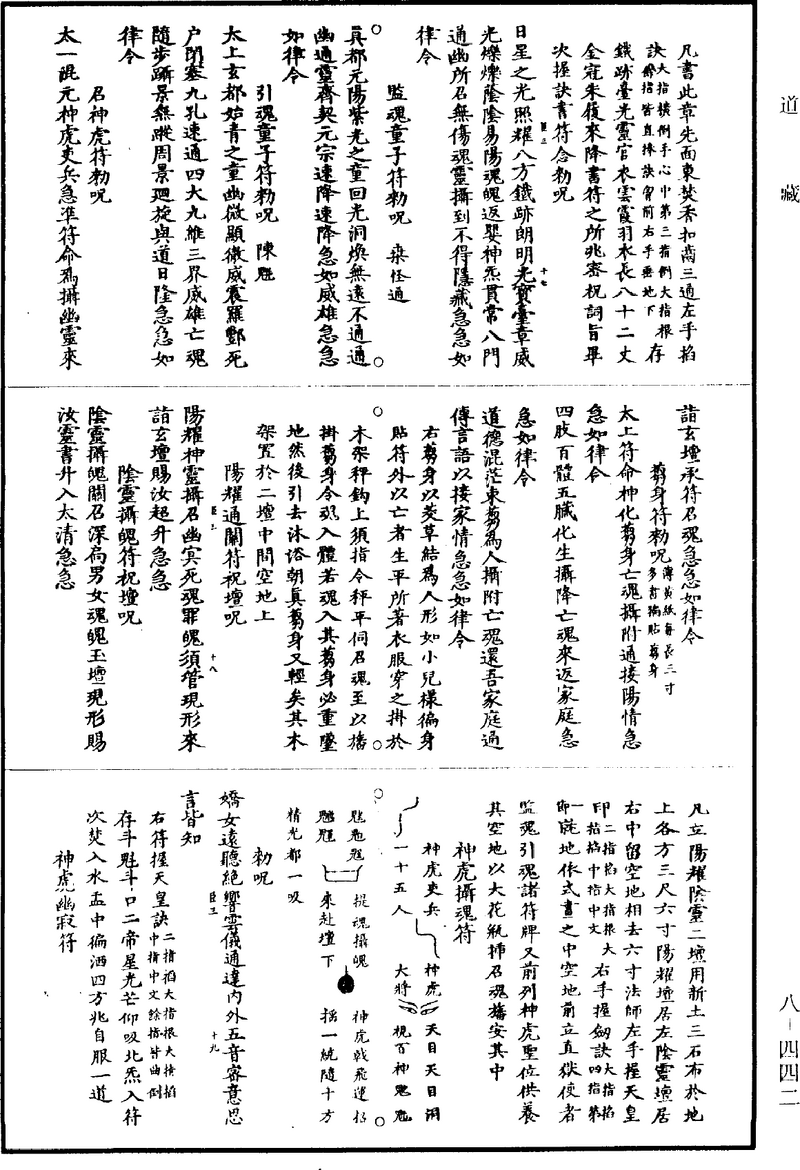 道藏
八—四四二
凡書此章先面東焚香扣齒三通左手掐
訣大指橫倒手心中第三指倒大指根存
餘指皆直捧訣當前右手垂地下
鐵跡臺光靈官衣雲霞羽衣長八十二丈
全冠朱履來降書符之所兆密祝詞旨畢
次握訣書符念勑呪
日星之光照耀八方鐵跡朗明光寶臺章威
光爍爍蔭陰易陽魂魄返嬰神炁貫常八門
通幽所召無傷魂靈攝到不得隱藏急急如
律令
監魂童子符勑呪 桑怪通
真都元陽紫光之童回光洞煥無遠不通通
幽通靈齊契元宗速降速降急如威雄急急
如律令
引魂童子符勑呪 陳魁
太上玄都始青之童幽微顯徹威震羅酆死
户閉塞九孔速通四大九維三界威雄亡魂
隨步躡景無蹤周景迴旋與道日隆急急如
律令
召神虎符勑呪
太一混元神虎吏兵急準符命為攝幽靈來
詣玄壇承符召魂急急如律令
蒭身符勑呪薄黃紙每長三寸
多書貼蒭身
太上符命神化蒭身亡魂攝附通接陽情急
急如律令
四肢百體五臟化生攝降亡魂來返家庭急
急如律令
道德混茫束蒭為人攝附亡魂還吾家庭通
傳言語以接家情急急如律令
右蒭身以茭草結為人形如小兒樣徧身
貼符外以亡者生平所著衣服穿之掛於
木架秤鈎上須指令秤平伺召魂至以旛
掛蒭身令魂入體若魂入其蒭身必重墜
地然後引去沐浴朝真蒭身又輕矣其木
架置於二壇中間空地上
陽耀通關符祝壇呪
陽耀神靈攝召幽冥死魂罪魄須管現形來
詣玄壇賜汝超升急急
陰靈攝魄符祝壇呪
陰靈攝魄關召深扃男女魂魄玉壇現形賜
汝靈書升入太清急急
凡立陽耀陰靈二壇用新土三石布於地
上各方三尺六寸陽耀壇居左陰靈壇居
右中留空地相去六寸法師左手握天皇
印二指掐大指根大指掐中指中文右手握劒訣大指掐四指第一
節旋地依式畫之中空地前立直獄使者
監魂引魂諸符牌又前列神虎聖位供養
其空地以大花瓶插召魂旛安其中
神虎攝魂符
神虎吏兵 神虎 天目天目洞
一十五人 大將 視百神鬼
捉魂攝魄 神虎戟飛運
來赴壇下 搖一統隨十方
精光都一吸
勑呪
嬌女遠聽絕響雲儀通達內外五音審意思
言皆知
右符握天皇訣二指掐大指根大指掐中指中文餘指皆曲倒
存斗魁斗口二帝星光芒仰吸北炁入符
次焚入水盂中徧洒四方兆自服一道
神虎幽寂符